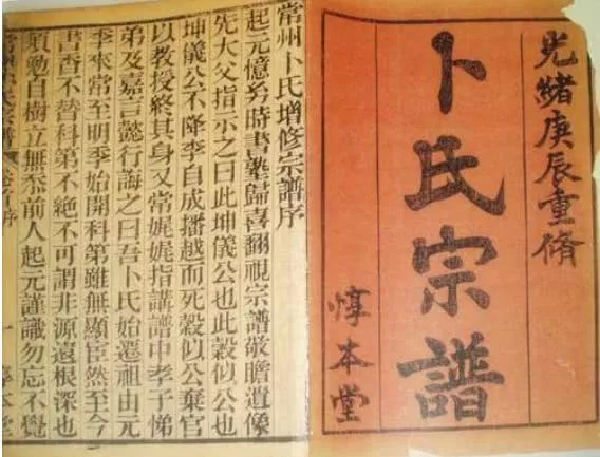 光緒庚辰重脩
卜氏宗譜
惇本堂
常州卜氏增修宗譜序
起元憶幼時書塾歸喜翻視宗譜敬瞻遺像
先大父指示之曰此坤儀公也此穀似公也
坤儀公不降李自成播越而死穀似公棄官
以教授終其身又常娓娓指講譜中孝子悌
弟及嘉言懿行誨之曰吾卜氏始遷祖由元
季來常至明季始開科第雖無顯臣然至今
書香不替科第不絕不可謂非源遠根深也
須勤自樹立無忝前人起元謹識勿忘不覺
氏宗譜 序 一 惇本堂